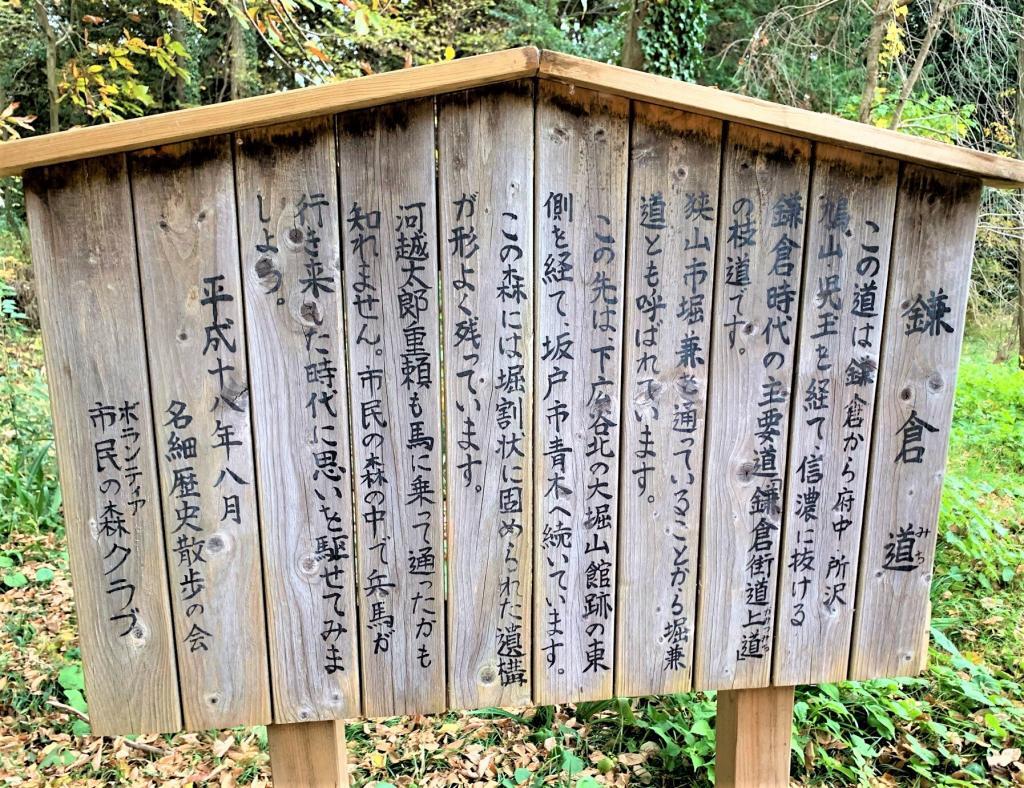 鎌倉道
みち
この道は鎌倉から府中 所沢
鳩山 児玉を経て信濃に抜ける
鎌倉時代の主要道「鎌倉街道上道」
かみつみち
の枝道です。
狭山市堀兼を通っていることから堀兼
道とも呼ばれています。
この先は、下広谷北の大堀山館跡の東
側を経て、坂戸市青木へ続いています。
この森には堀割状に固められた遺構
が形よく残っています。
河越太郎重頼も馬に乗って通ったかも
知れません。市民の森の中で兵馬が
行き来した時代に思いを駆せてみま
しょう。
平成十八年八月
名細歴史散歩の会
ボランティア
市民の森クラブ